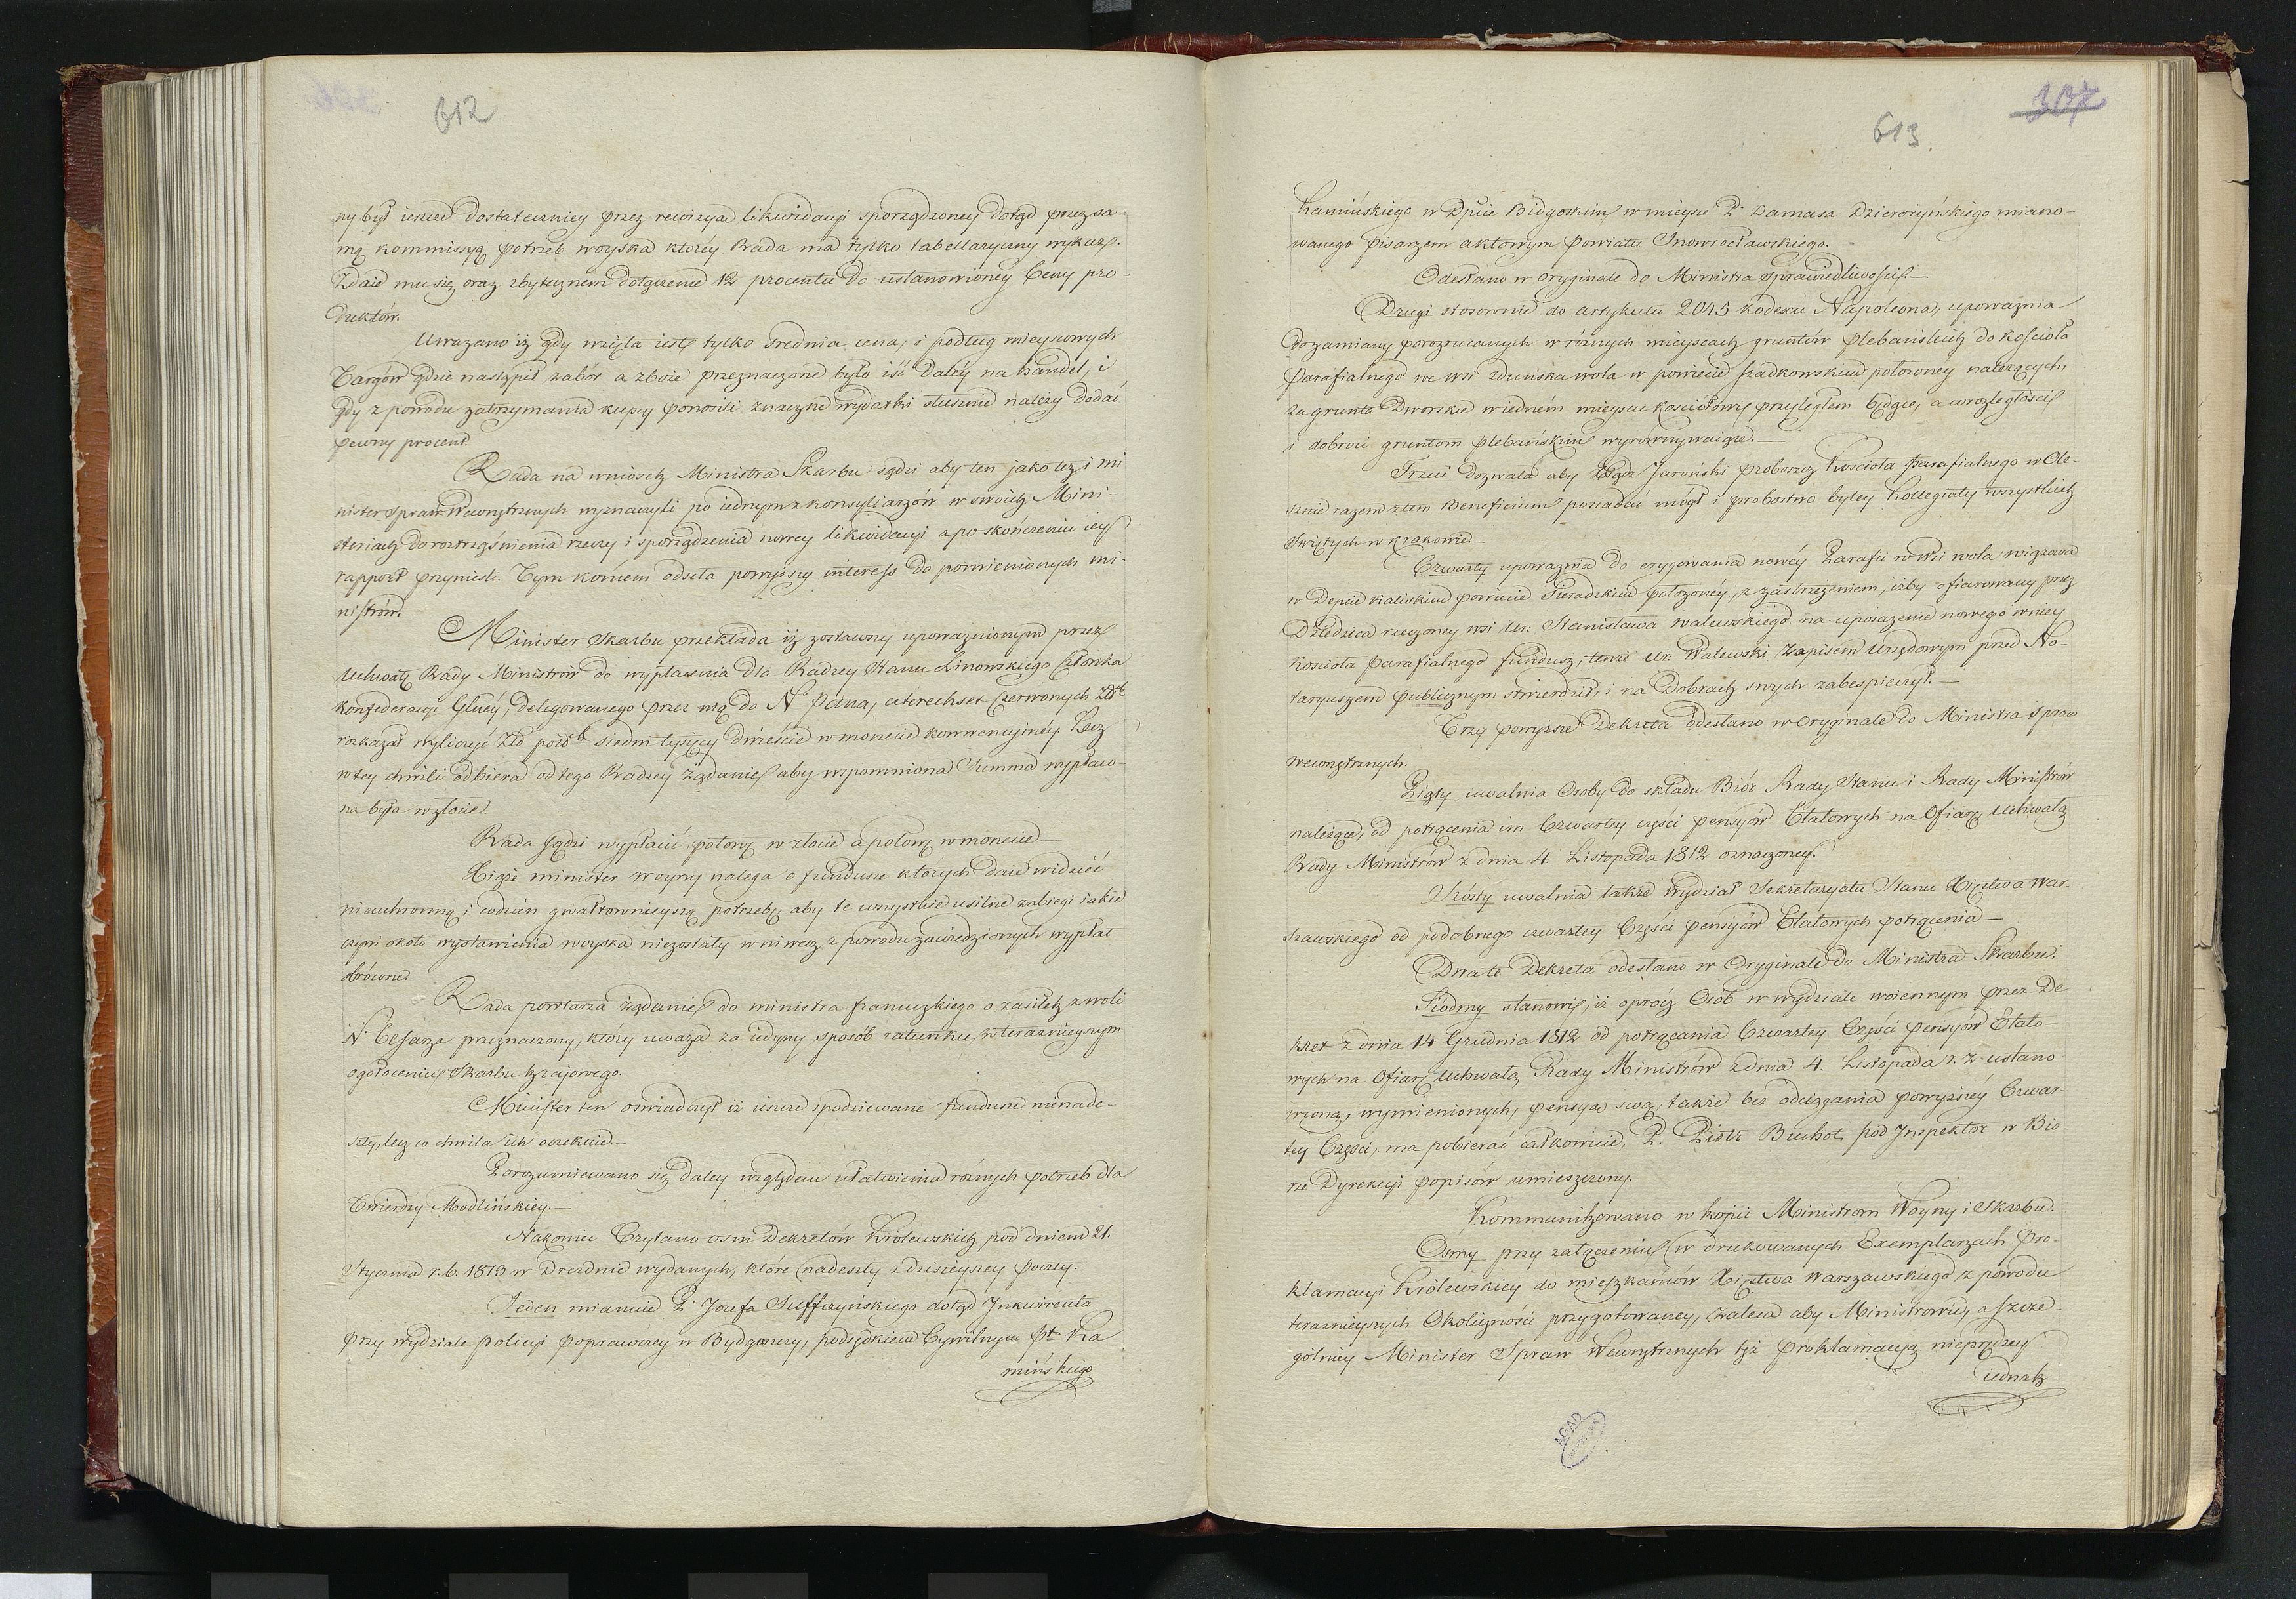 612
ny był ieszcze dostateczniey przez rewizyą likwidacyi sporządzoney dotąd przez sa-
mą kommissyą potrzeb woyska którey Rada ma tylko tabellaryczny wykaz.
Zdaie mu się oraz zbytecznem dołączenie 12 procentu do ustanowioney Ceny pro-
duktów.
Uważano iż gdy wzięta iest tylko średnia cena, i podług mieyscowych
Targów gdzie nastąpił zabór a zboże przeznaczone było iść daléy na handel, i
gdy z powodu zatrzymania kupcy ponosili znaczne wydatki słusznie należy dodać
pewny procent.
Rada na wniosek Ministra Skarbu sądzi aby ten jako też i mi
nister Spraw Wewnętrznych wyznaczyli po iednym z konsyliarzów w swoich Mini-
steriach do roztrząśnienia rzeczy i sporządzenia nowey likwidacyi a po skończeniu iey
rapport przynieśli. Tym końcem odseła powyższy interess do pomienionych mi-
nistrów.
Minister Skarbu przekłada iż zostawszy upoważnionym przez
Uchwałę Rady Ministrów do wypłacenia dla Radzcy Stanu Linowskiego Członka
konfederacyi Głuéy, delegowanego przez nią do N Pana, czterechset Czerwonych Złch
rozkazał wyliczyć Złd polsch siedm tysięcy dwieście w monecie konwencyinéy Lecz
w tey chwili odbiera od tego Radzcy żądanie aby wspomniona Summa wypłaco-
na była w złocie.
Rada sądzi wypłacić połowę w złocie a połowę w monecie—
Xiąże minister woyny nalega o fundusze których daie widzieć
nieuchronną i codzień gwałtownieyszą potrzebę aby te wszystkie usilne zabiegi iakie
czyni około wystawienia woyska niezostały w niwecz z powodu zawiedzionych wypłat
obrócone.
Rada powtarza żądanie do ministra francuzkiego o zasiłek z woli
N. Cesarza przeznaczony, który uważa za iedyny sposób ratunku w teraznieyszym
ogołoceniu Skarbu krajowego.
Minister ten oświadczył iż ieszcze spodziewane fundusze nienade-
szły, lecz co chwila ich oczekuie.—
Porozumiewano się daley względem ułatwienia różnych potrzeb dla
Twierdzy Modlińskiey.—
Nakoniec Czytano osm Dekretów Królewskich pod dniem 21.
Stycznia r. b. 1813 w Dreznie wydanych, które nadeszły z dzisieyszey poczty.
Jeden mianuie P. Jozefa Suffczyńskiego dotąd Inkwirenta
przy wydziale policyi poprawczey w Bydgoszczy, podsędkiem Cywilnym Ptu Ka
mińskiego
307
613
Kamińskiego w Dpcie Bidgoskim w mieysce P. Damasa Dzierożyńskiego miano-
wanego pisarzem aktowym powiatu Inowrocławskiego.
Odesłano w oryginale do Ministra Sprawiedliwości.—
Drugi stosownie do artykułu 2045 kodexu Napoleona, upoważnia
do zamiany porozrzucanych w różnych mieyscach gruntów plebańskich do kościoła
Parafialnego we wsi zduńska wola w powiecie szadkowskim położoney należących,
za grunta Dworskie w iedném mieyscu kościołowi przyległem będące, a w rozległości
i dobroci gruntom plebańskim wyrównywaiące.—
Trzeci dozwala aby Xiądz Jaroński proboszcz kościoła parafialnego w Ole-
sznie razem z tem Beneficium posiadać mógł i probostwo byłey kollegiaty wszystkich
Świętych w krakowie.—
Czwarty upoważnia do erygowania nowéy Parafii w wsi wola wiązowa
w Depcie kaliskim powiecie Sieradzkim położonéy, z zastrzeżeniem, iżby ofiarowany przez
Dziedzica rzeczoney wsi Ur: Stanisława Walewskiego na uposażenie nowego w niey
kościoła parafialnego fundusz, tenże Ur. Walewski Zapisem Urzędowym przed No-
taryuszem publicznym stwierdził, i na Dobrach swych zabespieczył.—
Trzy powyższe Dekreta odesłano w Oryginale do Ministra Spraw
wewnętrznych.
Piąty uwalnia Osoby do składu Biór Rady Stanu i Rady Ministrów
należące, od potrącenia im Czwartey części pensyów Etatowych na Ofiarę, Uchwałą
Rady Ministrów z dnia 4. Listopada 1812 oznaczoney.
Szósty uwalnia także wydział Sekretaryatu Stanu Xięztwa War-
szawskiego od podobnego czwartey Części pensyów Etatowych potrącenia—
Dwa te Dekreta odesłano w Oryginale do Ministra Skarbu.
Siódmy stanowi, iż oprócz Osób w wydziale woiennym przez De
kret z dnia 14 Grudnia 1812 od potrącania Czwartey Części pensyów Etato-
wych na Ofiarę Uchwałą Rady Ministrów z dnia 4. Listopada r. z. ustano-
wioną, wymienionych, pensyą swą, także bez odciągania powyższéy Czwar-
tey Części, ma pobierać całkowicie, P. Piotr Buchot pod Inspektor w Biό-
rze Dyrekcyi popisów umieszczony.
Kommunikowano w kopii Ministrom Woyny i Skarbu.
Osmy przy załączeniu w drukowanych Exemplarzach Pro-
klamacyi Królewskiey do mieszkańców Xięztwa Warszawskiego z powodu
teraznieyszych Okoliczności przygotowaney, zaleca aby Ministrowie, a szcze-
gólniey Minister Spraw Wewnętrznych tęż proklamacyą nieprędzey
iednak
AGAD